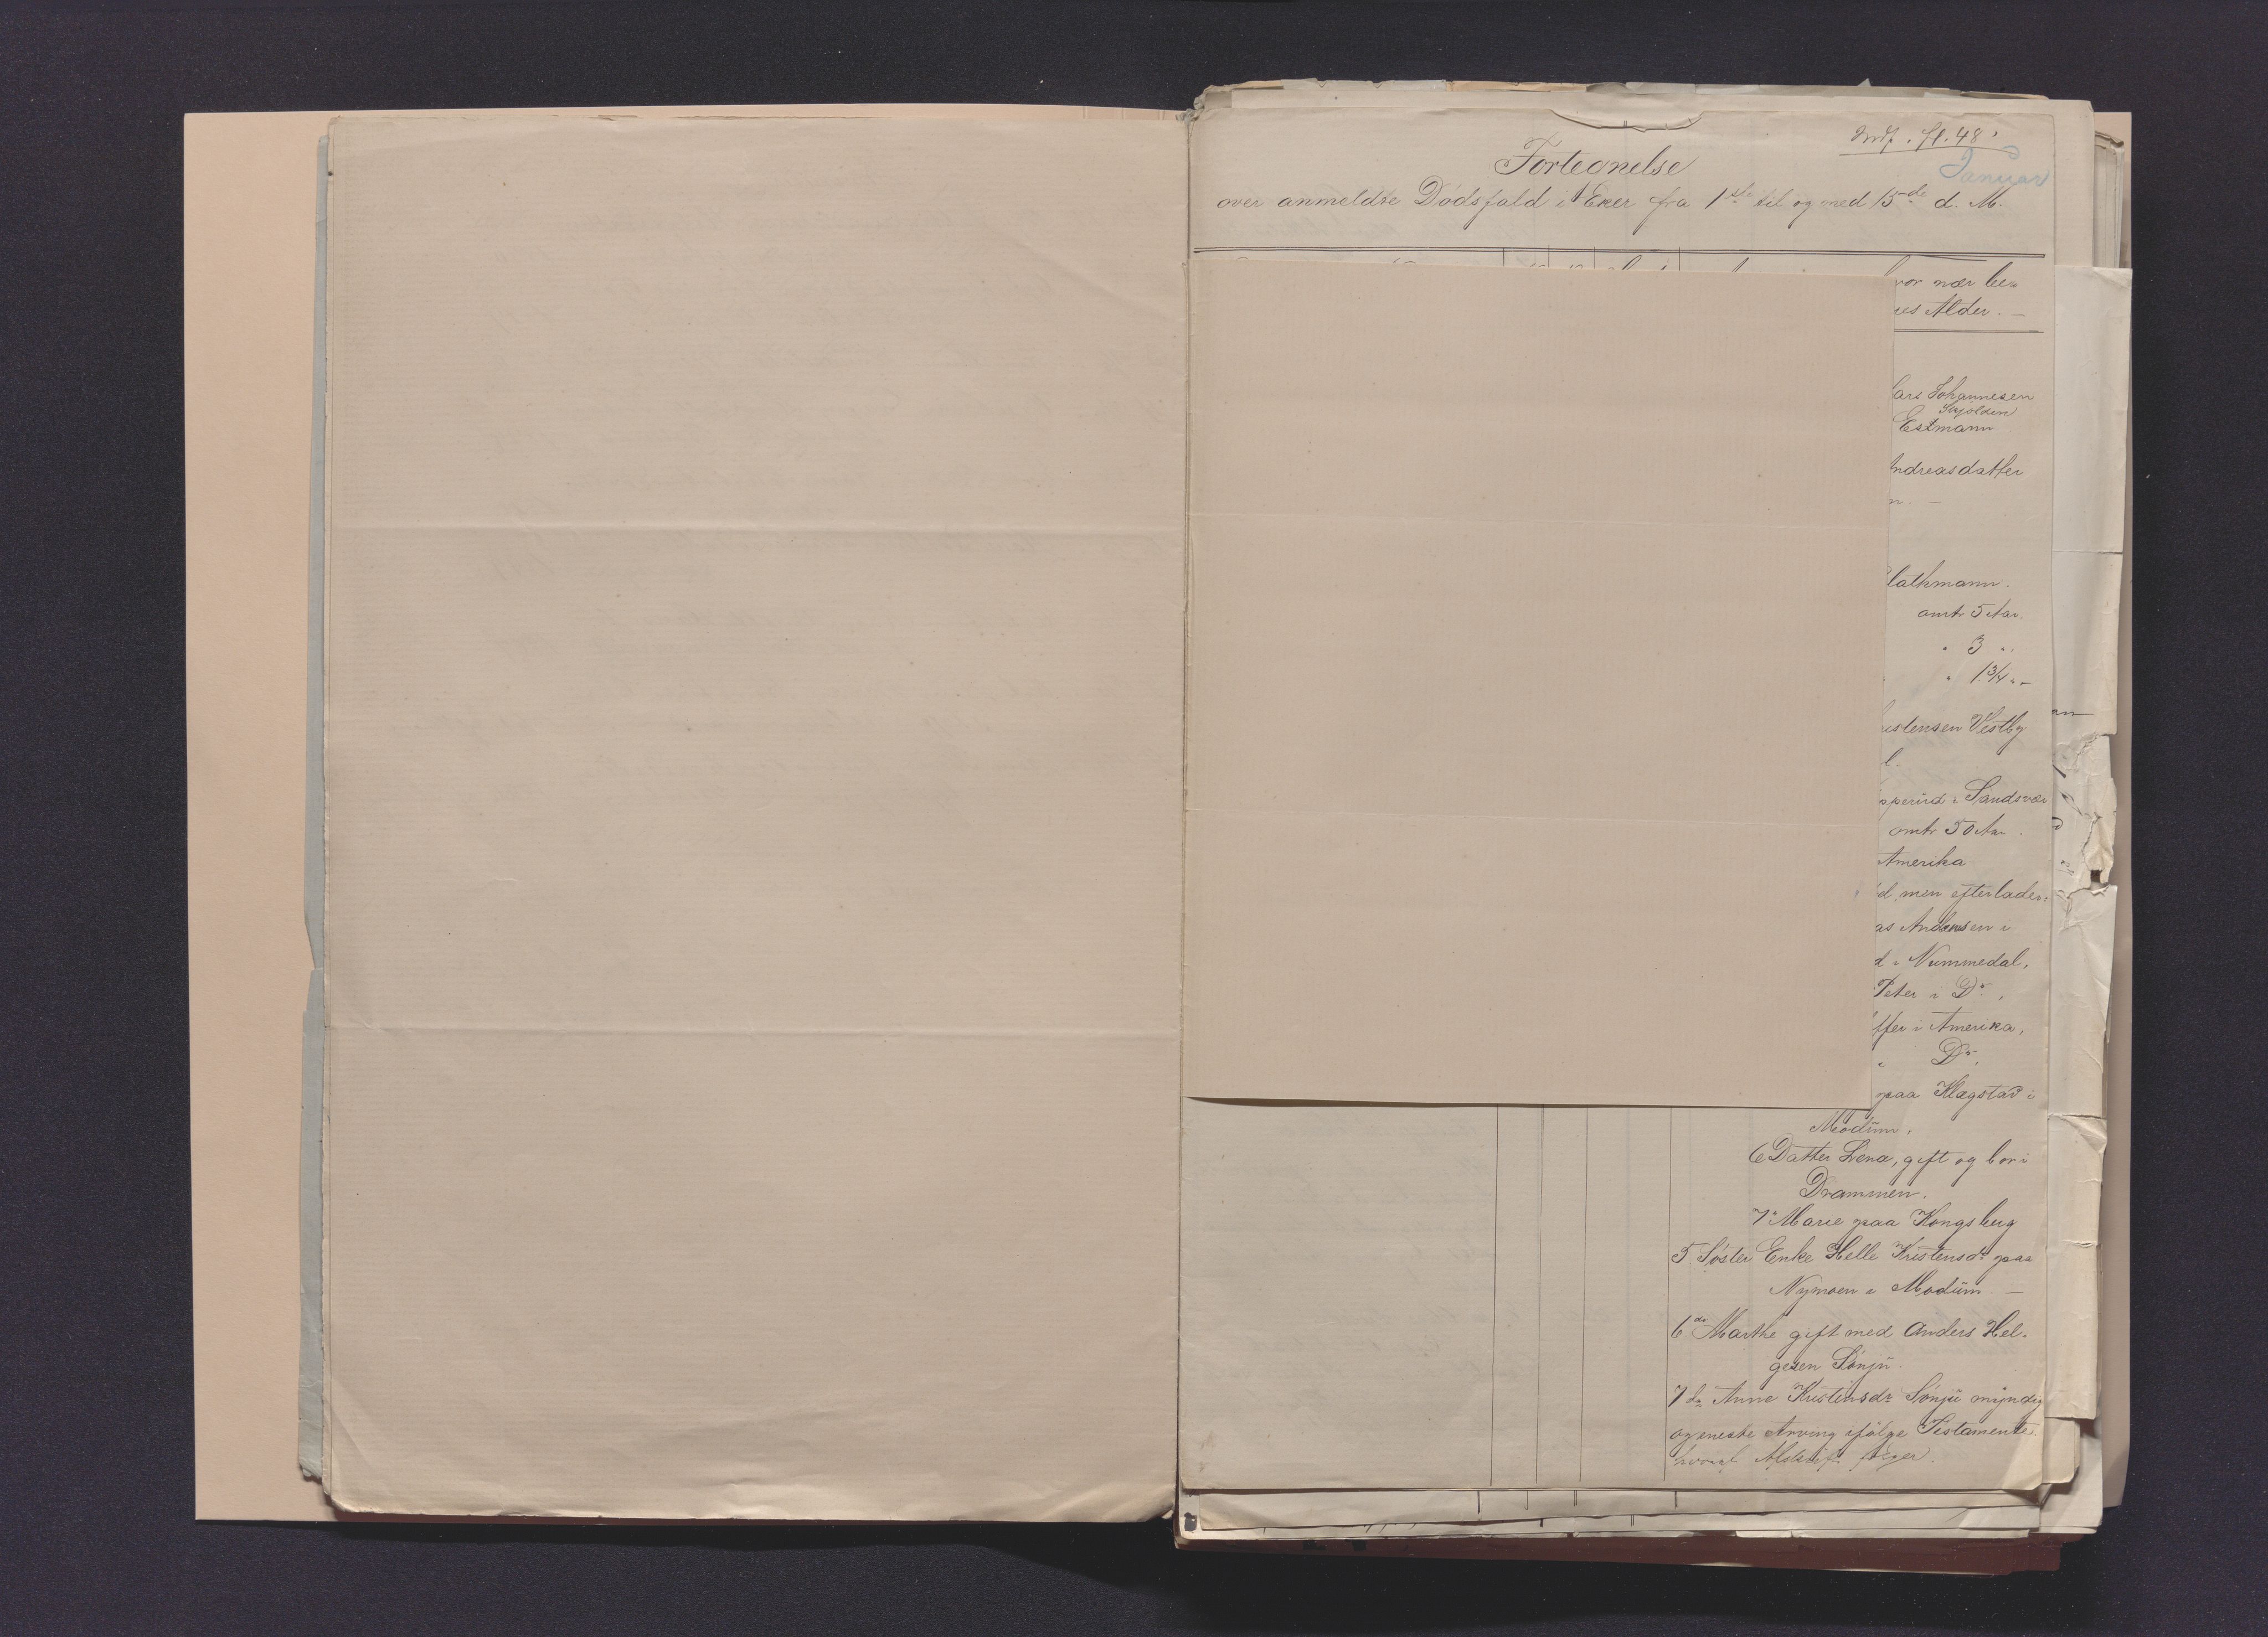 Indf. fl. 48.
Januar
Fortegnelse
over anmeldte Dødsfald i N Eker fra 1ste til og med 15de d. M.
vor nær be=
res Alder. —
Lars Johannesen
Skjolden
Estmann
Andreasdatter
n. —
lathmann.
omtr 5 Aar.
" 3 "
" 1 3/4 " –
istensen Vestby
l.
pperud i Sandsvær
omtr 50 Aar.
Amerika
d, men efterlader=
as Andersen i
d i Nummedal,
Peter i Do.,
tter i Amerika,
" Do,
paa Klagstad i
Modum.
6 Datter Lena, gift og bor i
Drammen.
7 " Marie paa Kongsberg
5 Søster Enke Helle Kristensdr paa
Nymoen i Modum. —
6 do Marthe gift med Anders Hel-
gesen Sønju.
7 do Anne Kristensdr Sønju myndig
og eneste Arving ifølge Testamente
hvoraf Afskrift følger.